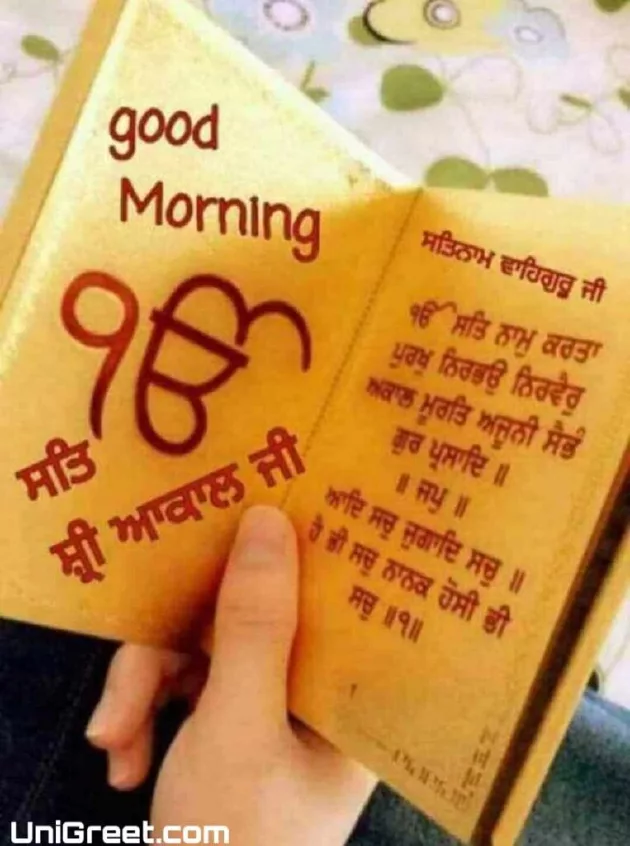 good
Morning
ੴ
ਸਤਿ
ਸ਼੍ਰੀ ਆਕਾਲ ਜੀ
ਸਤਿਨਾਮ ਵਾਹਿਗੁਰੂ ਜੀ
ੴ ਸਤਿ ਨਾਮੁ ਕਰਤਾ
ਪੁਰਖੁ ਨਿਰਭਉ ਨਿਰਵੈਰੁ
ਅਕਾਲ ਮੂਰਤਿ ਅਜੂਨੀ ਸੈਭੰ
ਗੁਰ ਪ੍ਰਸਾਦਿ ॥
॥ ਜਪੁ ॥
ਆਦਿ ਸਚੁ ਜੁਗਾਦਿ ਸਚੁ ॥
ਹੈ ਭੀ ਸਚੁ ਨਾਨਕ ਹੋਸੀ ਭੀ
ਸਚੁ ॥੧॥
UniGreet.com